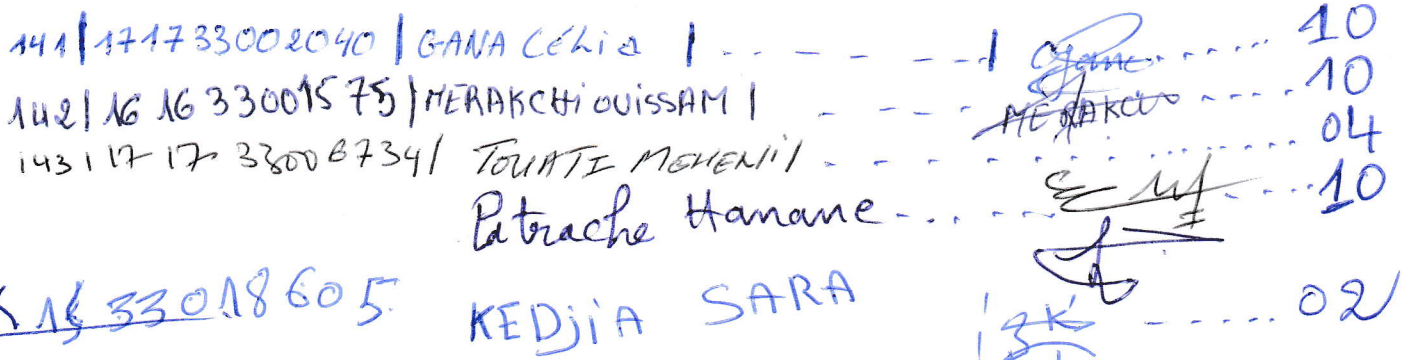 141|171733002040|GANA CéLiA |- - - - -| Gana ....... 10
142|16 16 33001575|MERAKCHi OUISSAM| - - - - MERAKCHI ...... 10
143|17 17 33006734| TOUATI MEHENI| - - - - - ............ 04
Patrache Hanane - . . . . - . . . . 10
33018605 KEDJiA SARA ...... 02